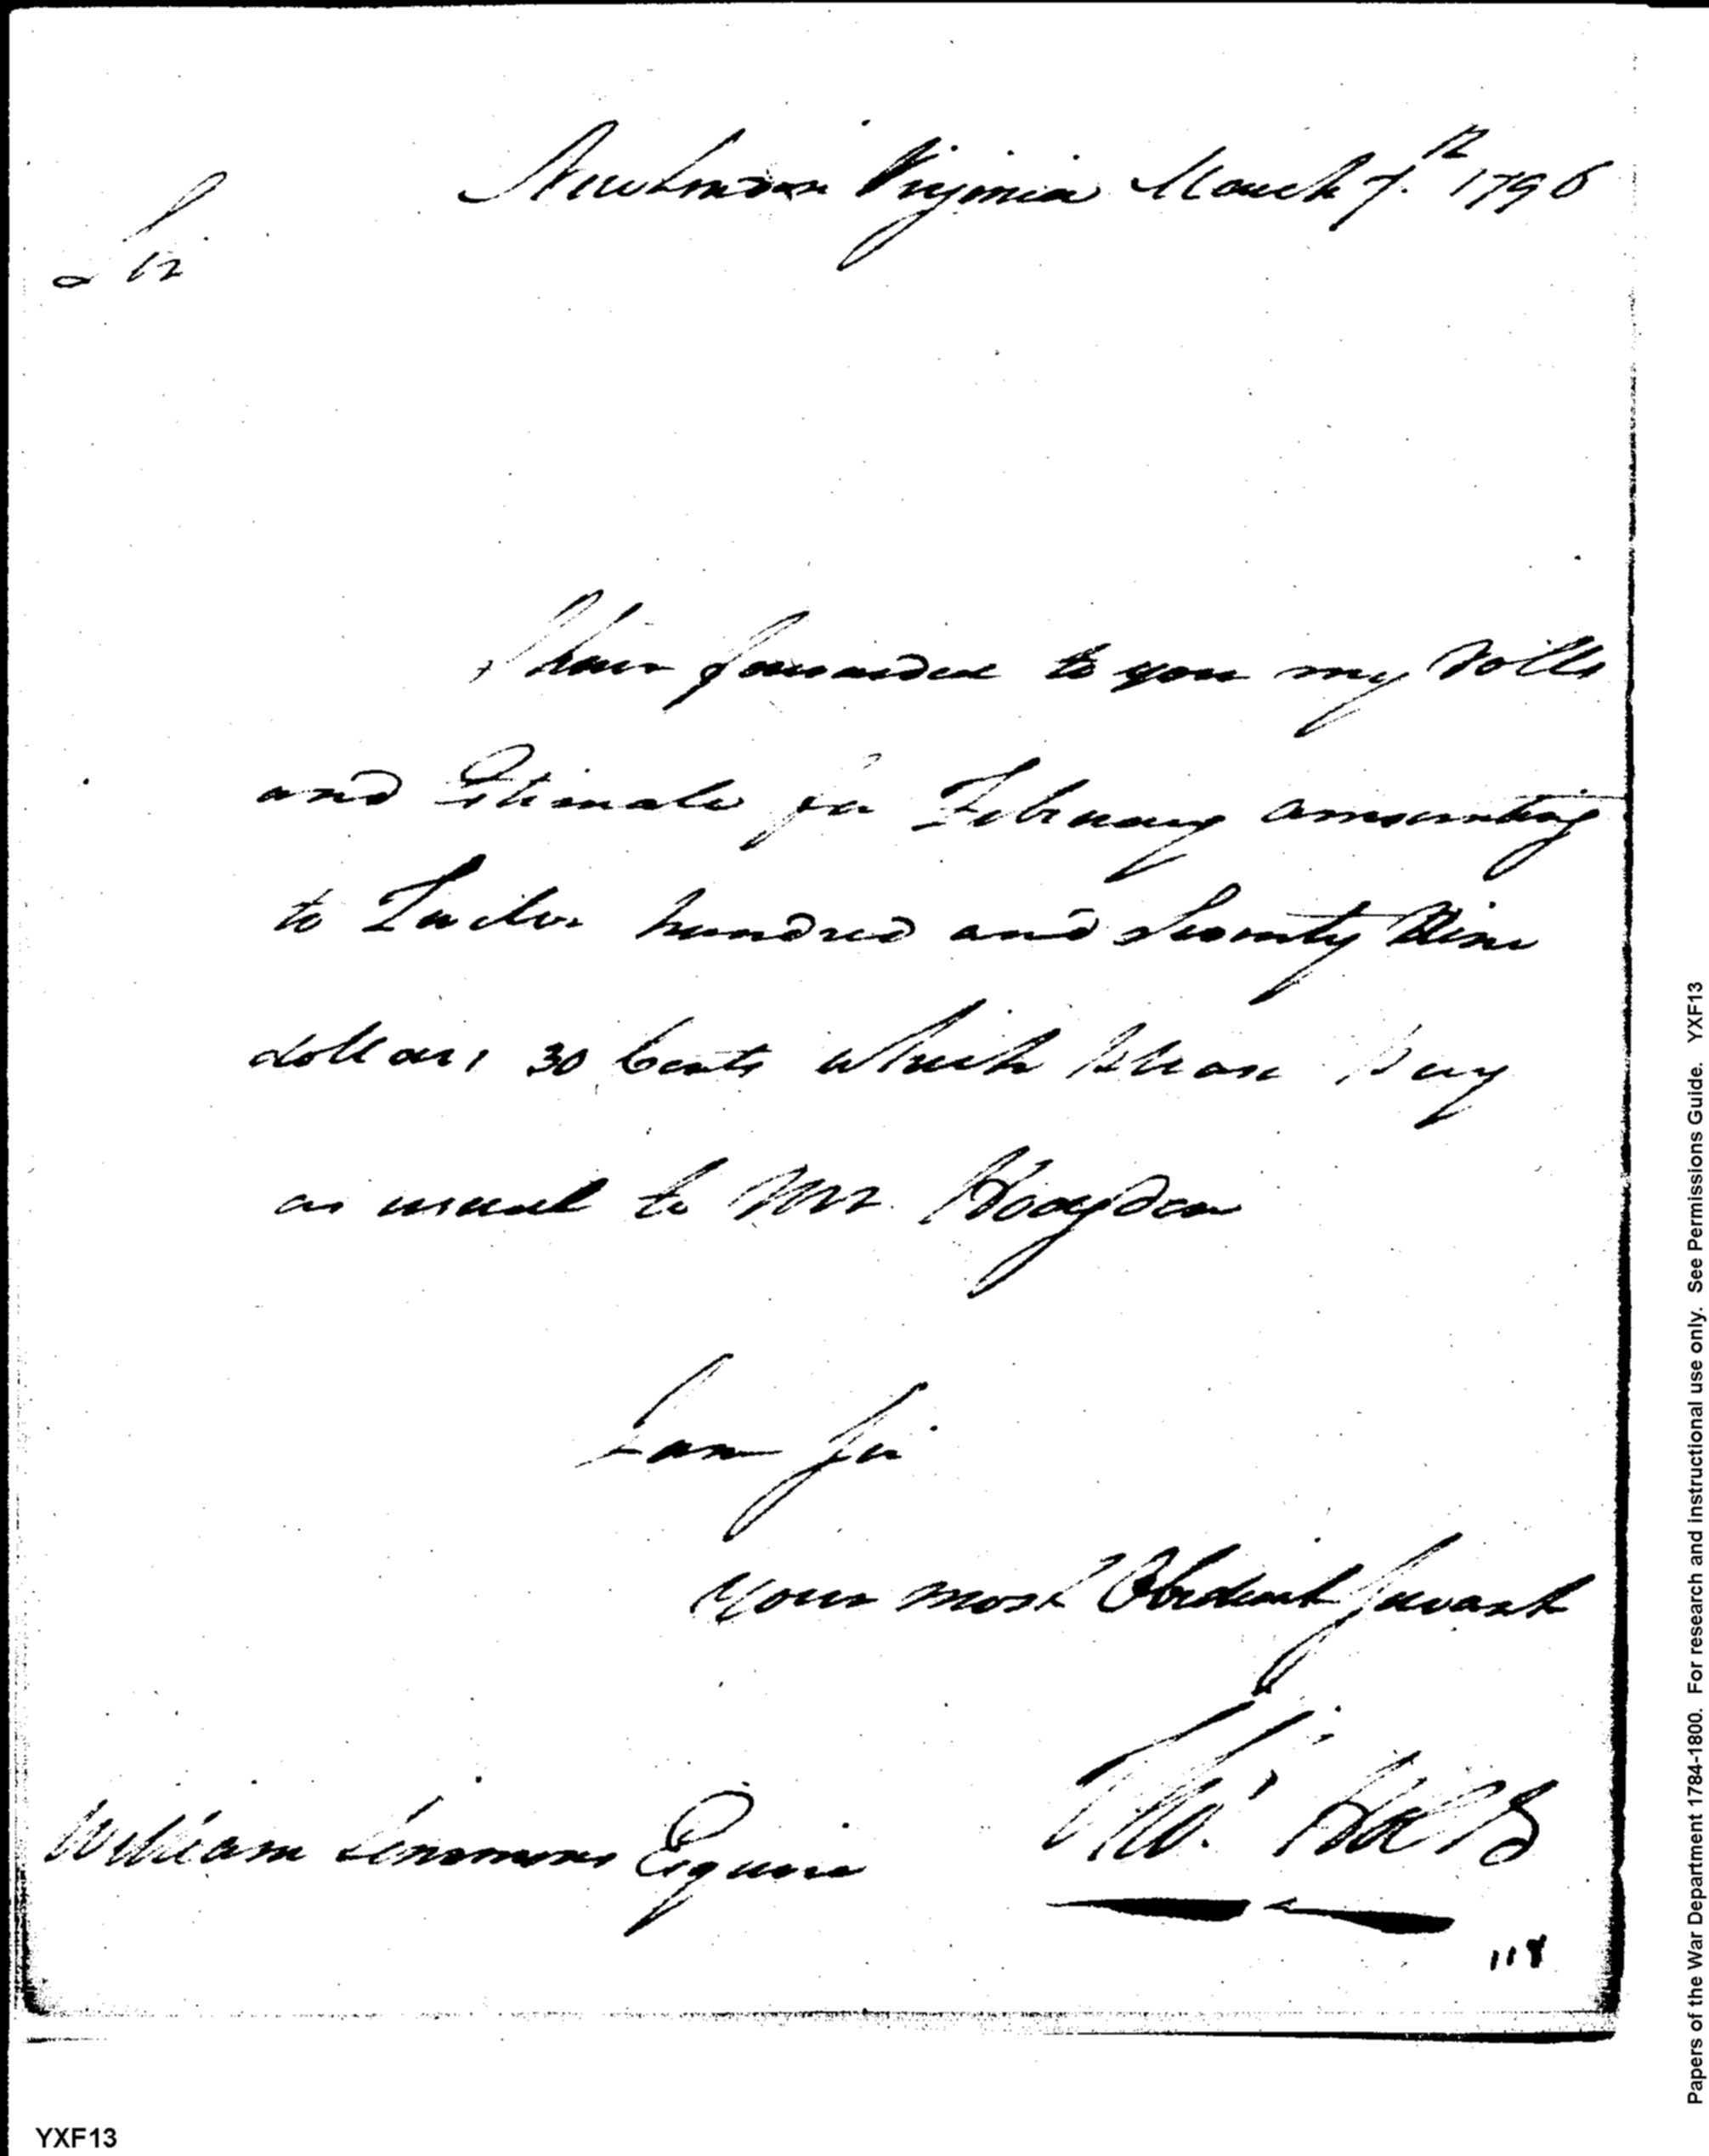 New London Virginia March 7.th 1796
Sir
I have forwarded to you my Rolls
and Estimate for February amounting
to Twelve hundred and Seventy Nine
dollars 30 Cents which please pay
as usual to Mr. Hodgdon
I am Sir
Your most Obedient Servant
Tho.s Holt
William Simmons Esquire
118
YXF13
Papers of the War Department 1784-1800. For research and instructional use only. See Permissions Guide. YXF13